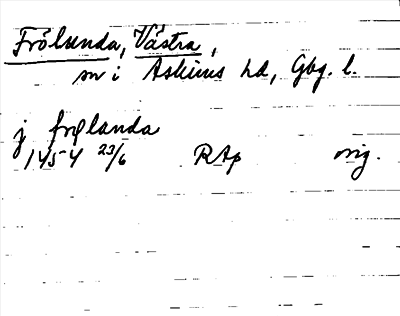 Frölunda, Västra,
sn i Askims hd, Gbg. l.
j frølanda
1454 23/6 RAp orig.